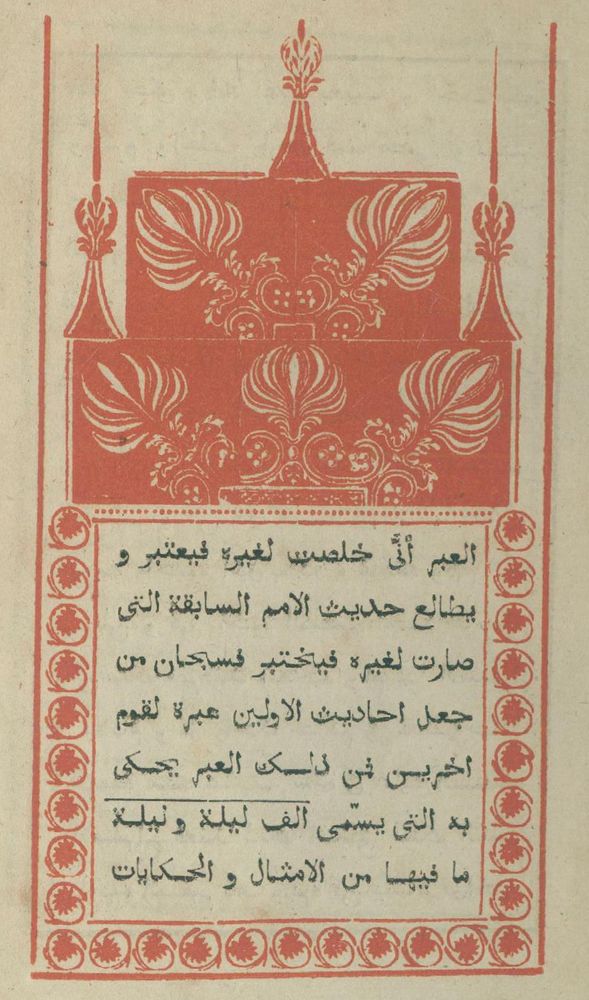 العبر أنَّي خلصت لغيره فيعتبر و
يطالع حديث الامم السابقة التى
صارت لغيره فيختبر فسبحان من
جعل احاديث الاولين عبرة لقوم
اخريـن فمن ذلـــك العبر يحـكى
به التى يسمّى الف ليلة و ليلـة
ما فيهـا من الامثـال و الحـكايات